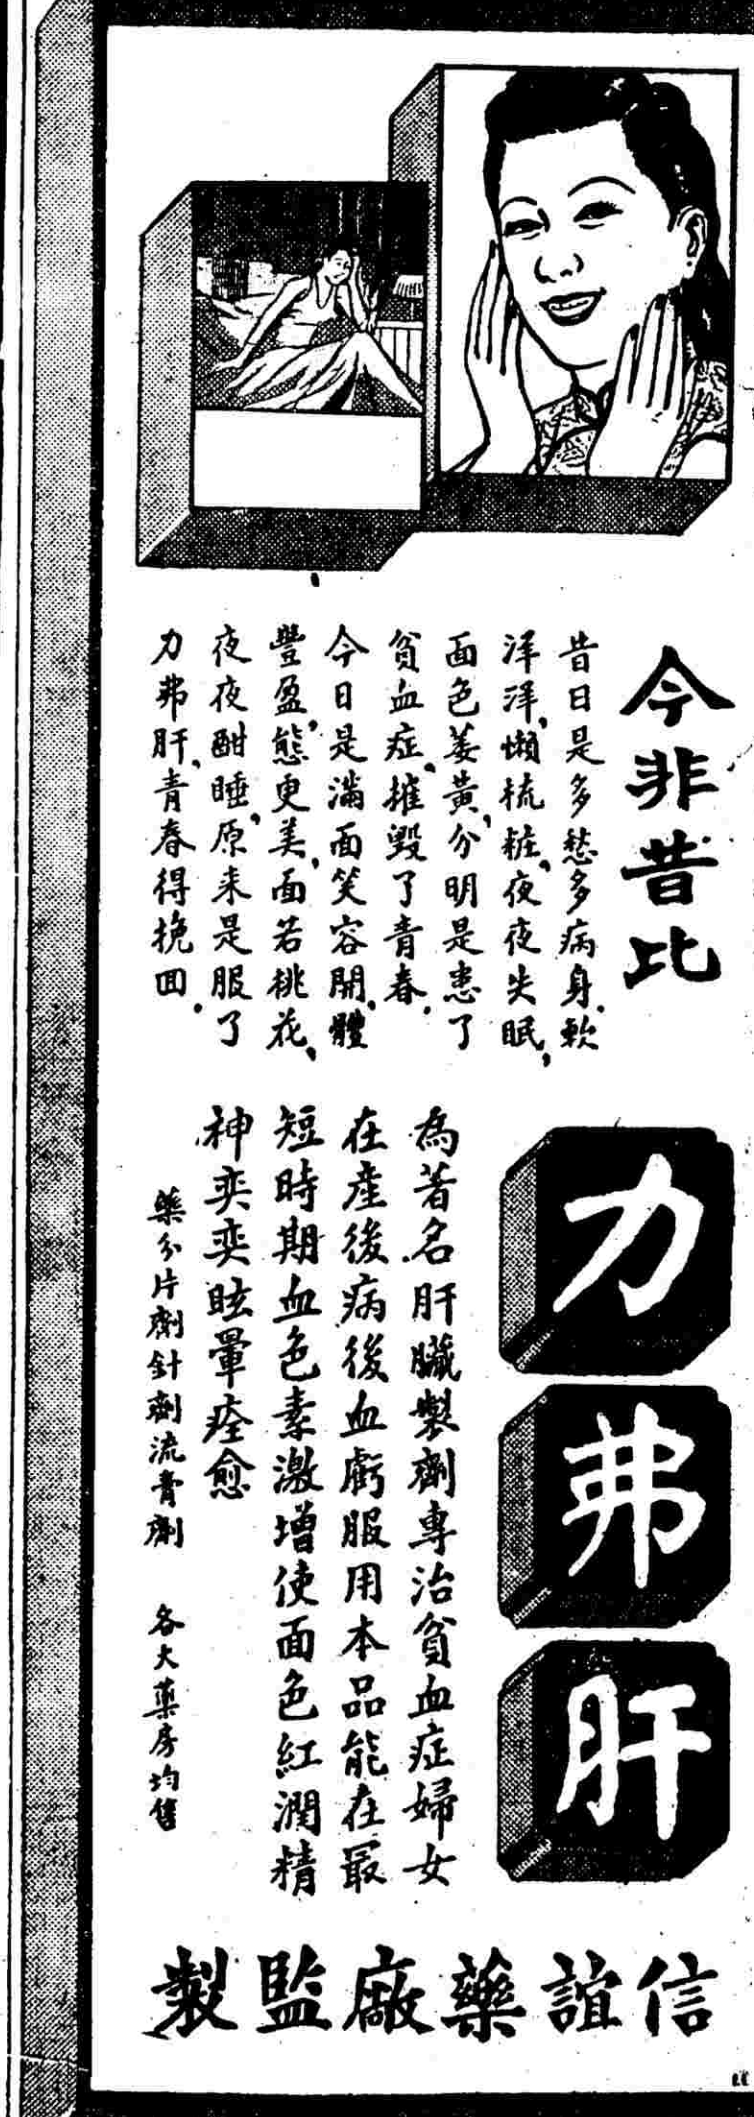 今非昔比
昔日是多愁多病身.軟
洋洋、懶梳粧、夜夜失眠、
面色萎黃、分明是患了
貧血症、摧毀了青春.
今日是滿面笑容開、體
豐盈、態更美、面若桃花、
夜夜酣睡、原来是服了
力弗肝、青春得挽回.
力弗肝
為著名肝臟製劑專治貧血症婦女
在產後病後血虧服用本品能在最
短時期血色素激增使面色紅潤精
神奕奕眩暈痊愈
藥分片劑針劑流膏劑 各大藥房均售
信誼藥廠監製